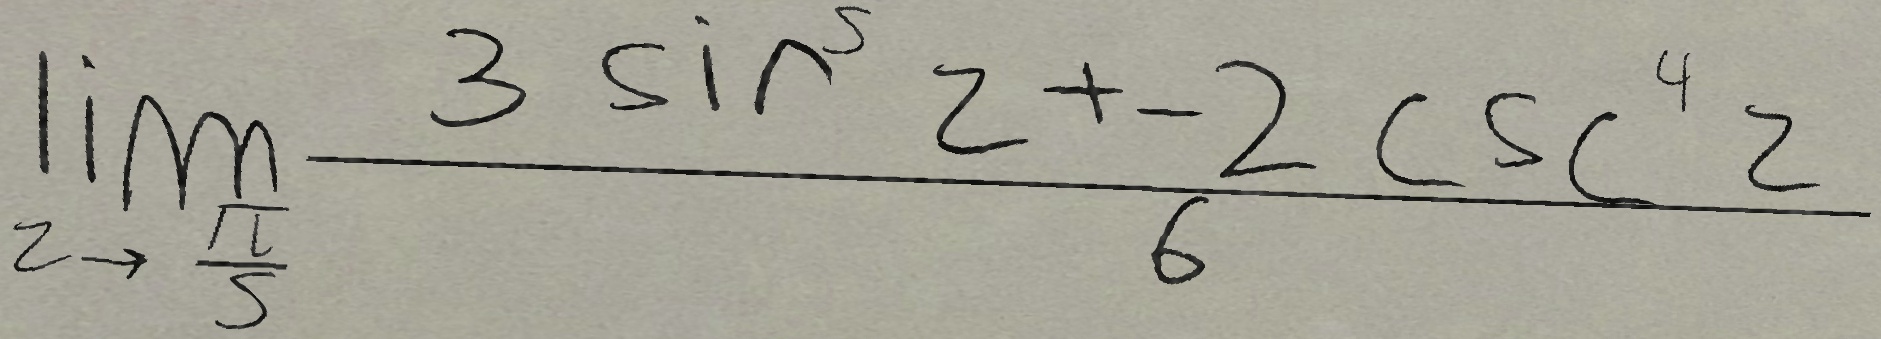 \lim_{z \to \frac{\pi}{5}} \frac{3 \sin^5 z + -2 \csc^4 z}{6}